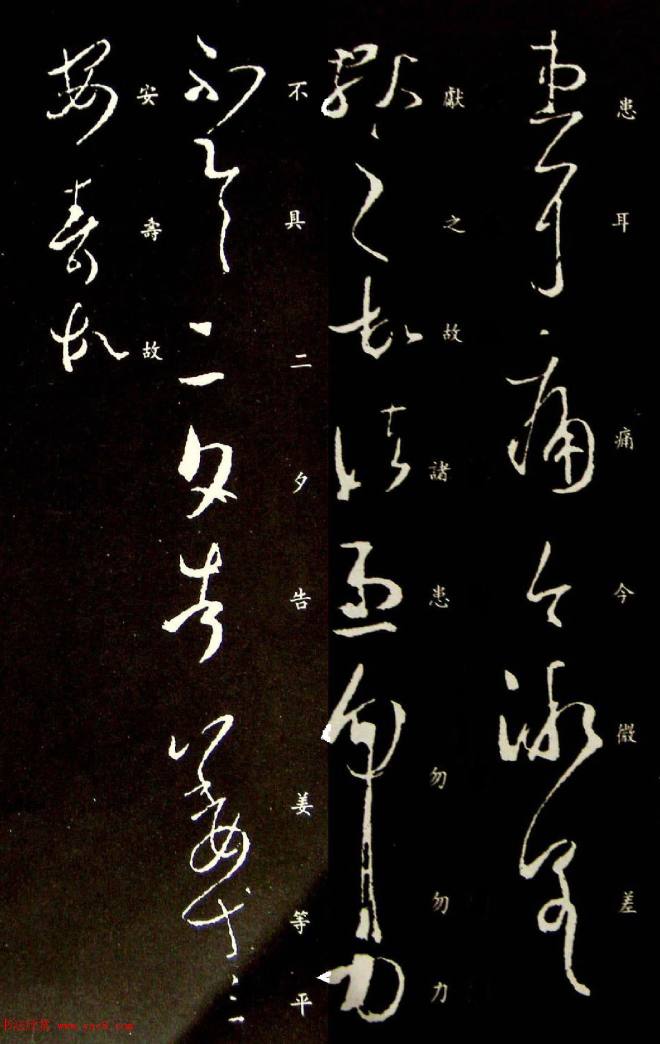 患耳痛今微差
獻之故諸患勿勿力
不具二夕告姜等平
安壽故